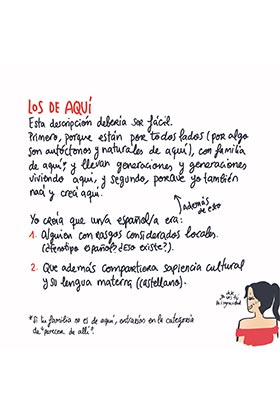 LOS DE AQUÍ
Esta descripción debería ser fácil.
Primero, porque están por todos lados (por algo
son autóctonos y naturales de aquí), con familia
de aquí*, y llevan generaciones y generaciones
viviendo aquí, y segundo, porque yo también
nací y crecí aquí.
además de eso
Yo creía que un/a español/a era:
1. Alguien con rasgos considerados locales.
(¿Fenotipo español? ¿Eso existe?).
2. Que además compartiera sapiencia cultural
y su lengua materna (castellano).
*Si tu familia no es de aquí, entrarías en la categoría
de "parecen de allí".